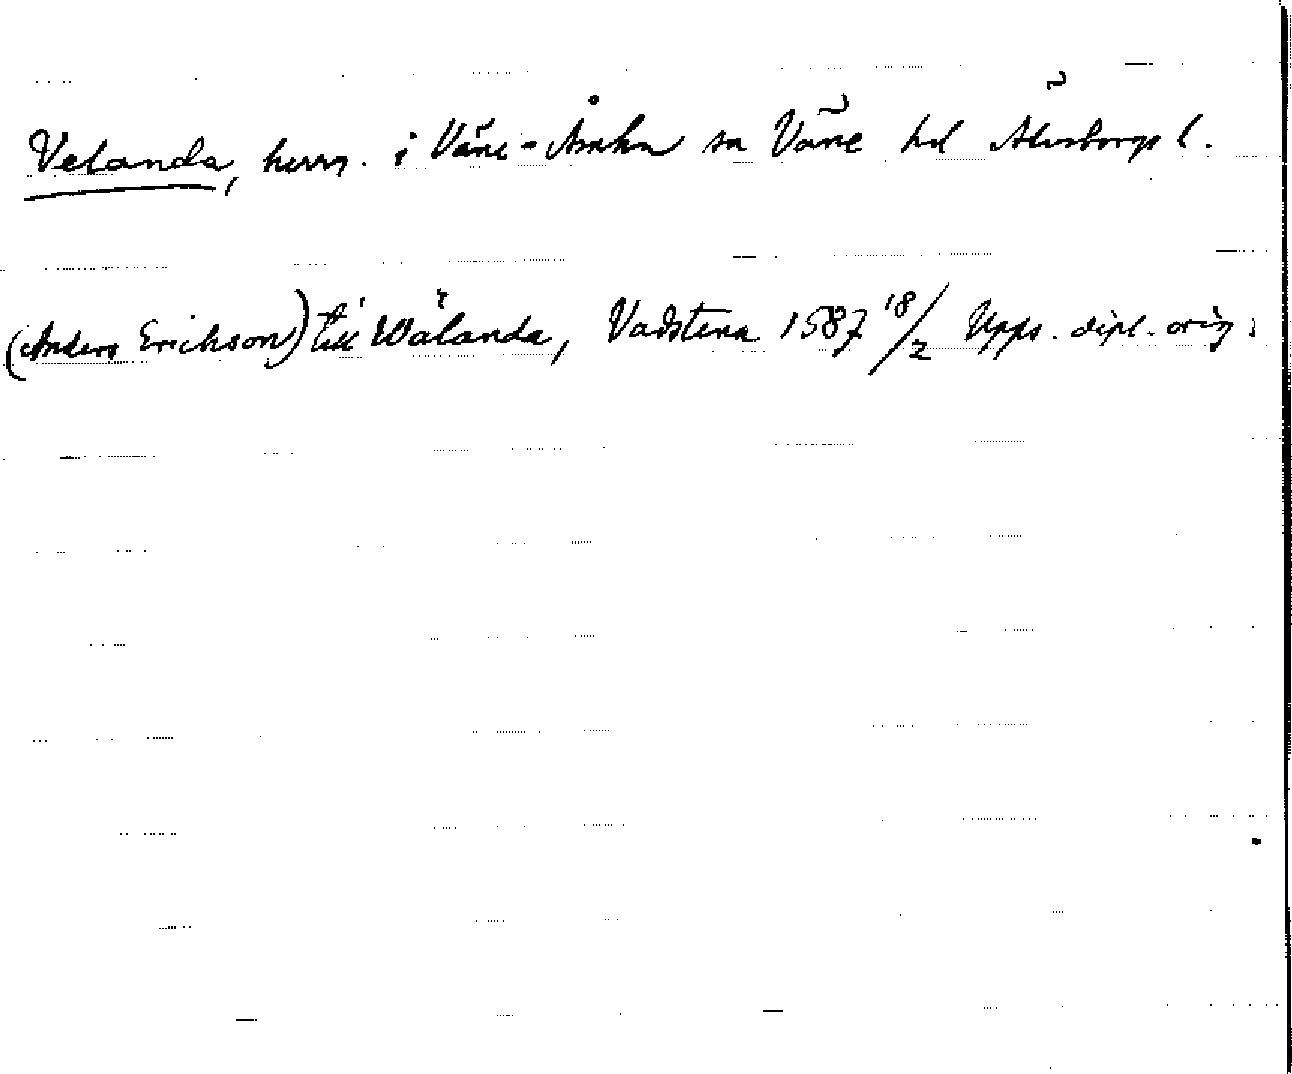 Velanda, herrg. i Väne-Åsaka sn Väne hd Älvsborgs l.
(Anders Erichson) till Wälanda, Vadstena 1587 18/2 Upps. dipl. orig.